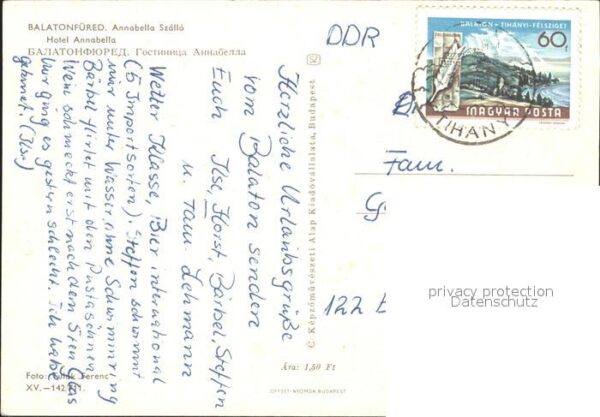 BALATONFÜRED. Annabella Szálló
Hotel Annabella
БАЛАТОНФЮРЕД. Гостиница Аннабелла
Herzliche Urlaubsgrüße
vom Balaton senden
Euch Ilse, Horst, Bärbel, Steffen
u. Fam. Lehmann
Wetter Klasse, Bier international
(5 Importsorten). Steffen schwimmt
nur unter Wasser, ohne Schwimmring
Bärbel flirtet mit den Pustaschnen
Wein schmeckt erst nach dem 5ten Glas
ging es gestern schlecht. Ich habe
(Ilse)
Foto: Ferenc
XV.—142
© Képzőművészeti Alap Kiadóvállalata, Budapest
Ára: 1,50 Ft
OFFSET-NYOMDA BUDAPEST
DDR
BALATON - TIHANYI-FÉLSZIGET
60f
MAGYAR POSTA
TIHANY
Fam.
122
privacy protection
Datenschutz